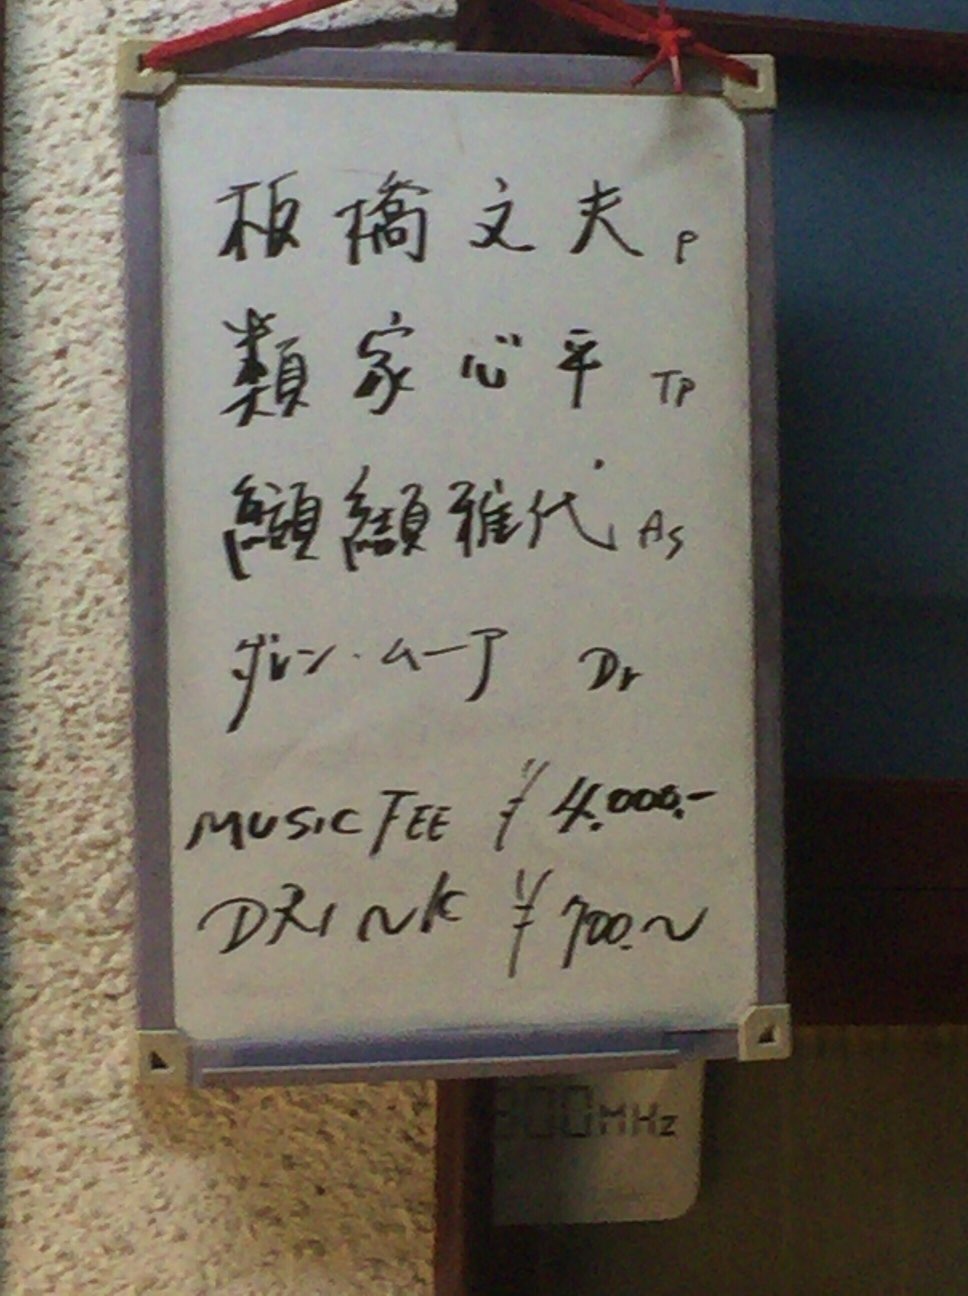 板橋文夫 P
類家心平 TP
纐纈雅代 As
ダレン・ムーア Dr
MUSIC FEE ¥4.000.-
DRINK ¥700.~
800MHz